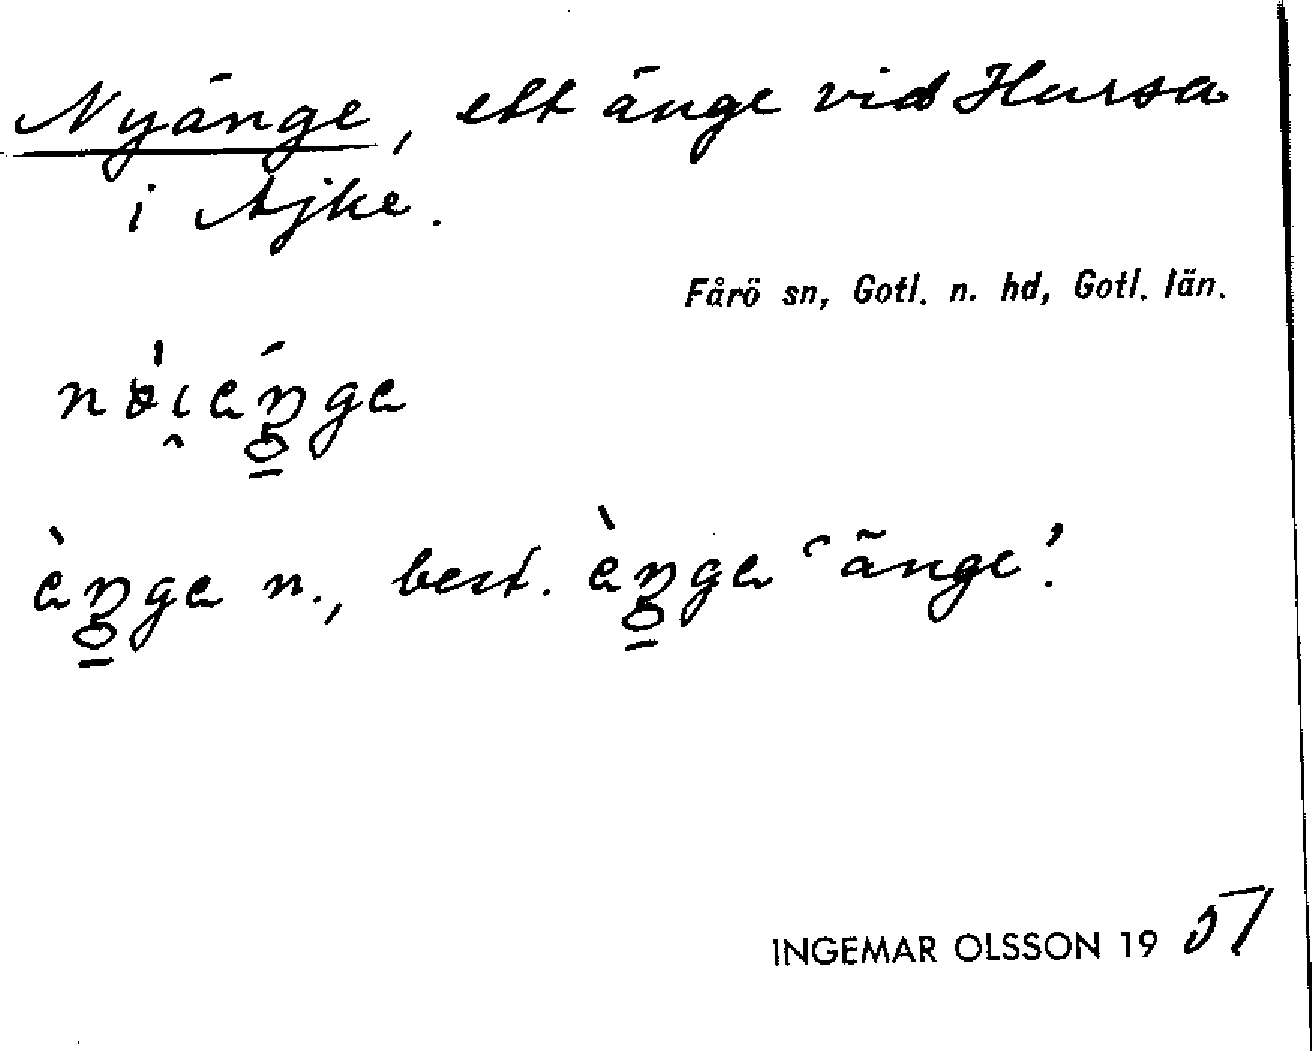 Nyänge, ett änge vid Hursa
i Ajke.
Fårö sn, Gotl. n. hd, Gotl. län.
èŋge n., best. èŋge 'änge'.
INGEMAR OLSSON 1951